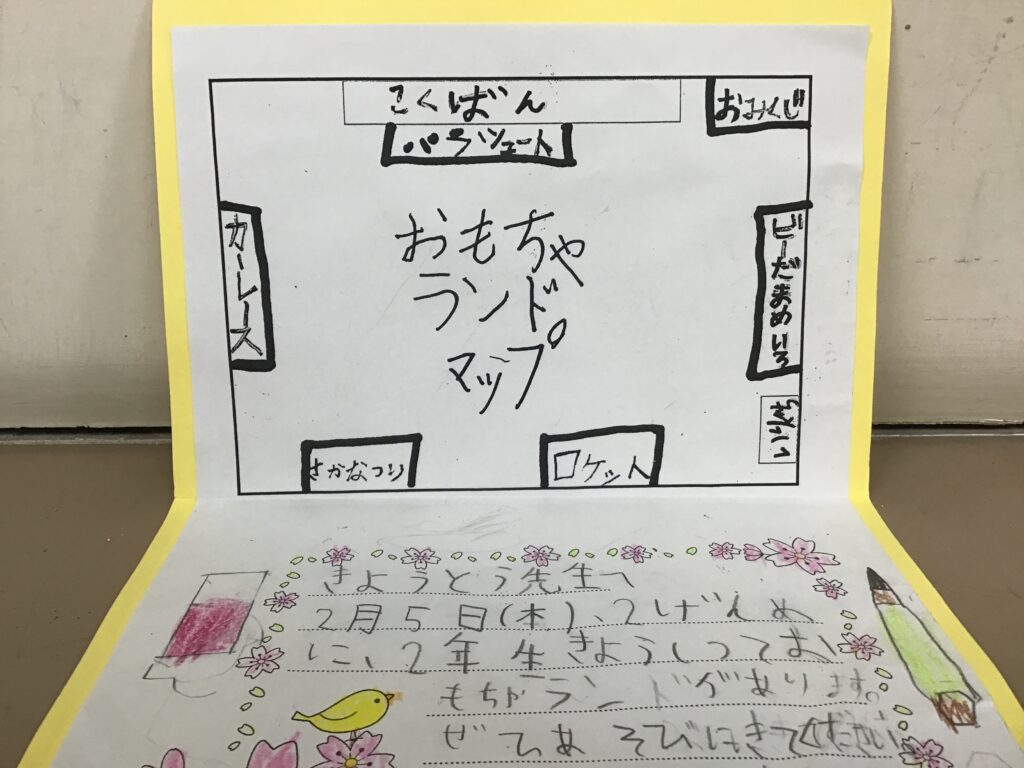 こくばん
おみくじ
パラシュート
カーレース
おもちゃ
ランド
マップ
ビーだまめいろ
いりぐち
さかなつり
ロケット
きょうとう先生へ
2月5日(木)、2げんめ
に、2年生きょうしつでお
もちゃランドがあります。
ぜひあそびにきてください